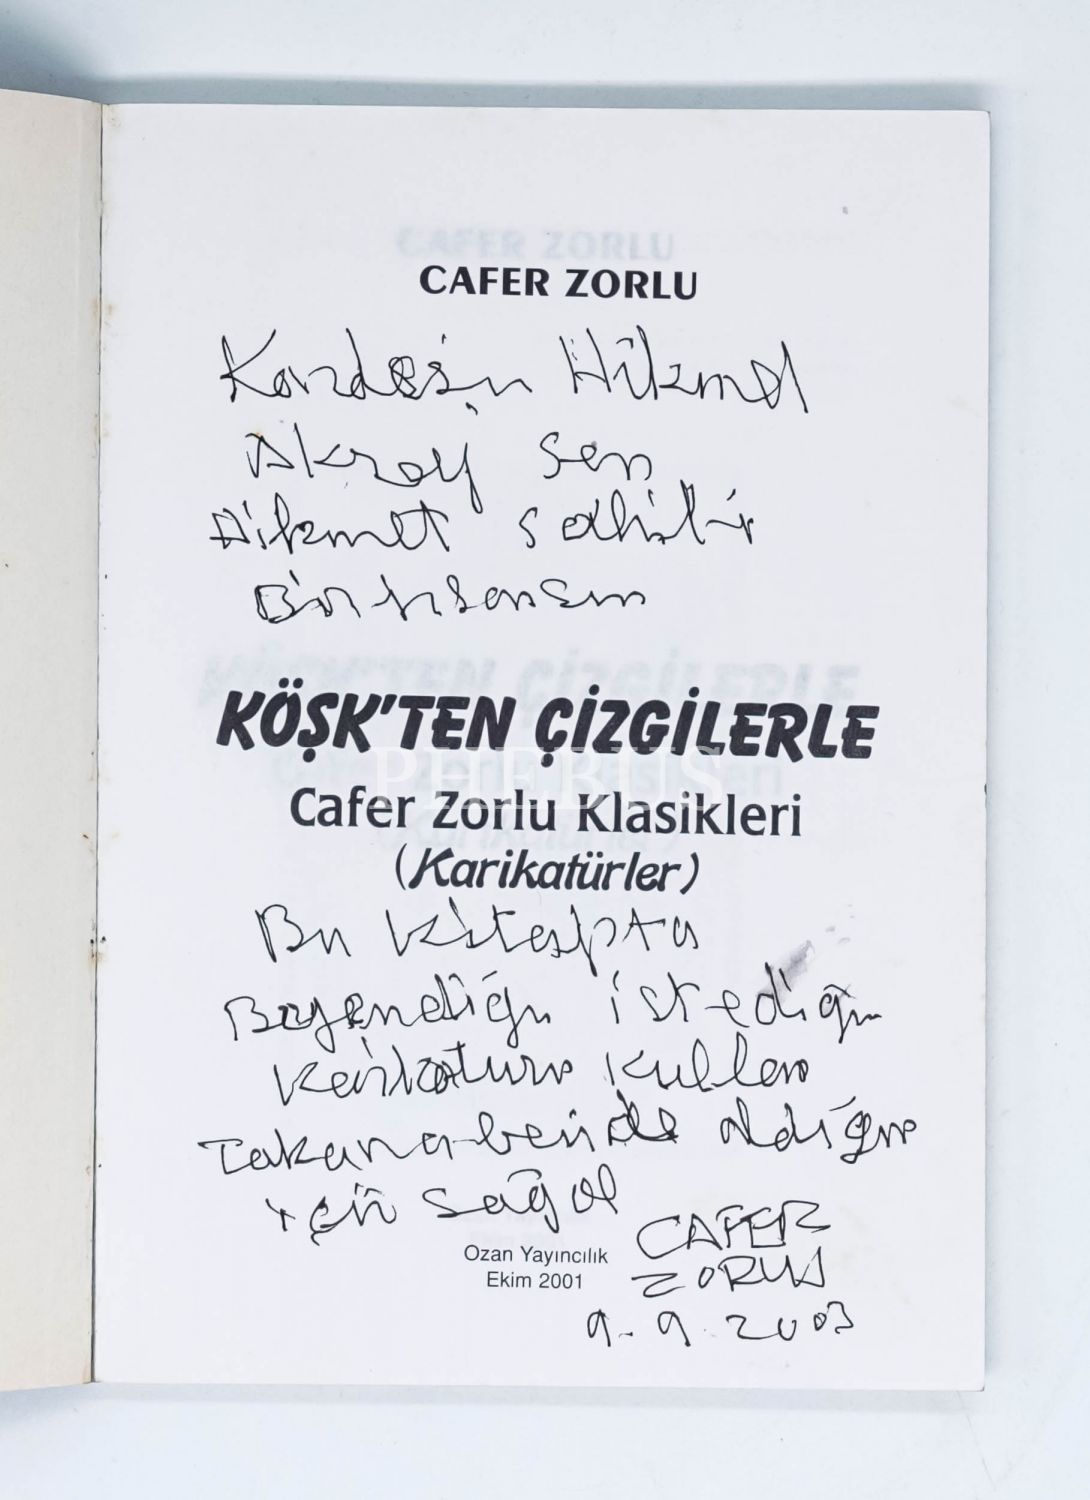 CAFER ZORLU
Kardeşin Hikmet
Aksoy Sen
Hikmet Sahibi
Bir insansın
KÖŞK'TEN ÇİZGİLERLE
PHEBUS
Cafer Zorlu Klasikleri
(Karikatürler)
Bu Kitapta
Beğendiğin istediğin
Karikatürü Kullan
olduğun
için Sağol
CAFER
ZORLU
Ozan Yayıncılık
Ekim 2001
9.9.2003